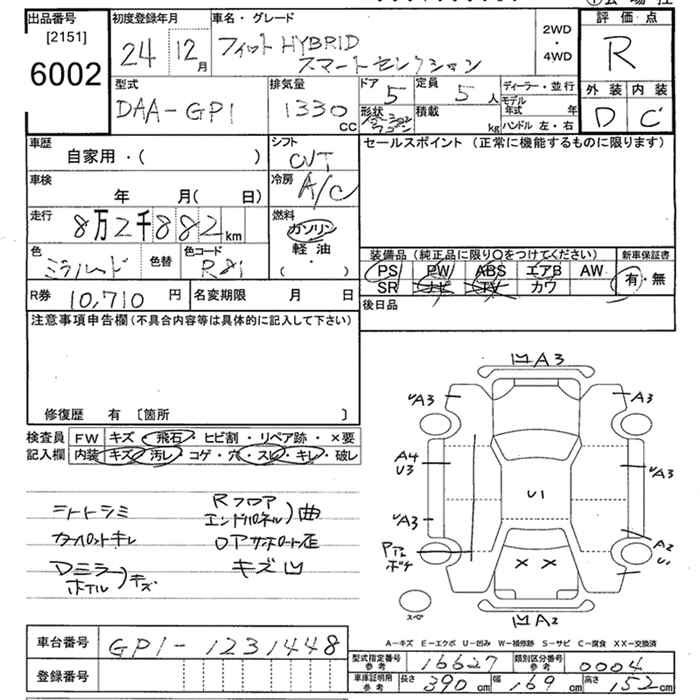 出品番号
[2151]
6002
初度登録年月
24 12月
車名・グレード
フィット HYBRID
スマートセレクション
2WD
・
4WD
評価点
R
外装 内装
D C
型式
DAA-GP1
排気量
1330 cc
ドア 5
形状
定員 5 人
積載 kg
ディーラー・並行
モデル年式 年
ハンドル 左・右
車歴
自家用・( )
シフト
CVT
セールスポイント (正常に機能するものに限ります)
車検
年 月( 日)
冷房
A/C
走行
8万2千882km
燃料
ガソリン
軽油
・( )
色
ミラノレッド
色替
色コード
R81
装備品 (純正品に限り○をつけてください)
PS PW ABS エアB AW
SR ナビ TV カワ
新車保証書
有・無
R券 10,710円
名変期限 月 日
後日品
注意事項申告欄 (不具合内容等は具体的に記入して下さい)
修復歴 有 [箇所 ]
検査員
記入欄
FW キズ・飛石・ヒビ割・リペア跡・×要
内装 キズ・汚レ・コゲ・穴・スレ・キレ・破レ
シートシミ
Rフロア
エンドパネル)曲
ロアサポート歪
キズ凹
Dミラー
ホイル)キズ
凹A3
UA3
A3
A4
U3
UA3
UA3
U1
A2
U1
××
凹A2
A-キズ E-エクボ U-凹み W-補修跡 S-サビ C-腐食 XX-交換済
車台番号
GP1-1231448
登録番号
型式指定番号
参考
16627
類別区分番号
参考
0004
車庫証明用
参考
長さ 390cm 幅 169cm 高さ 152cm